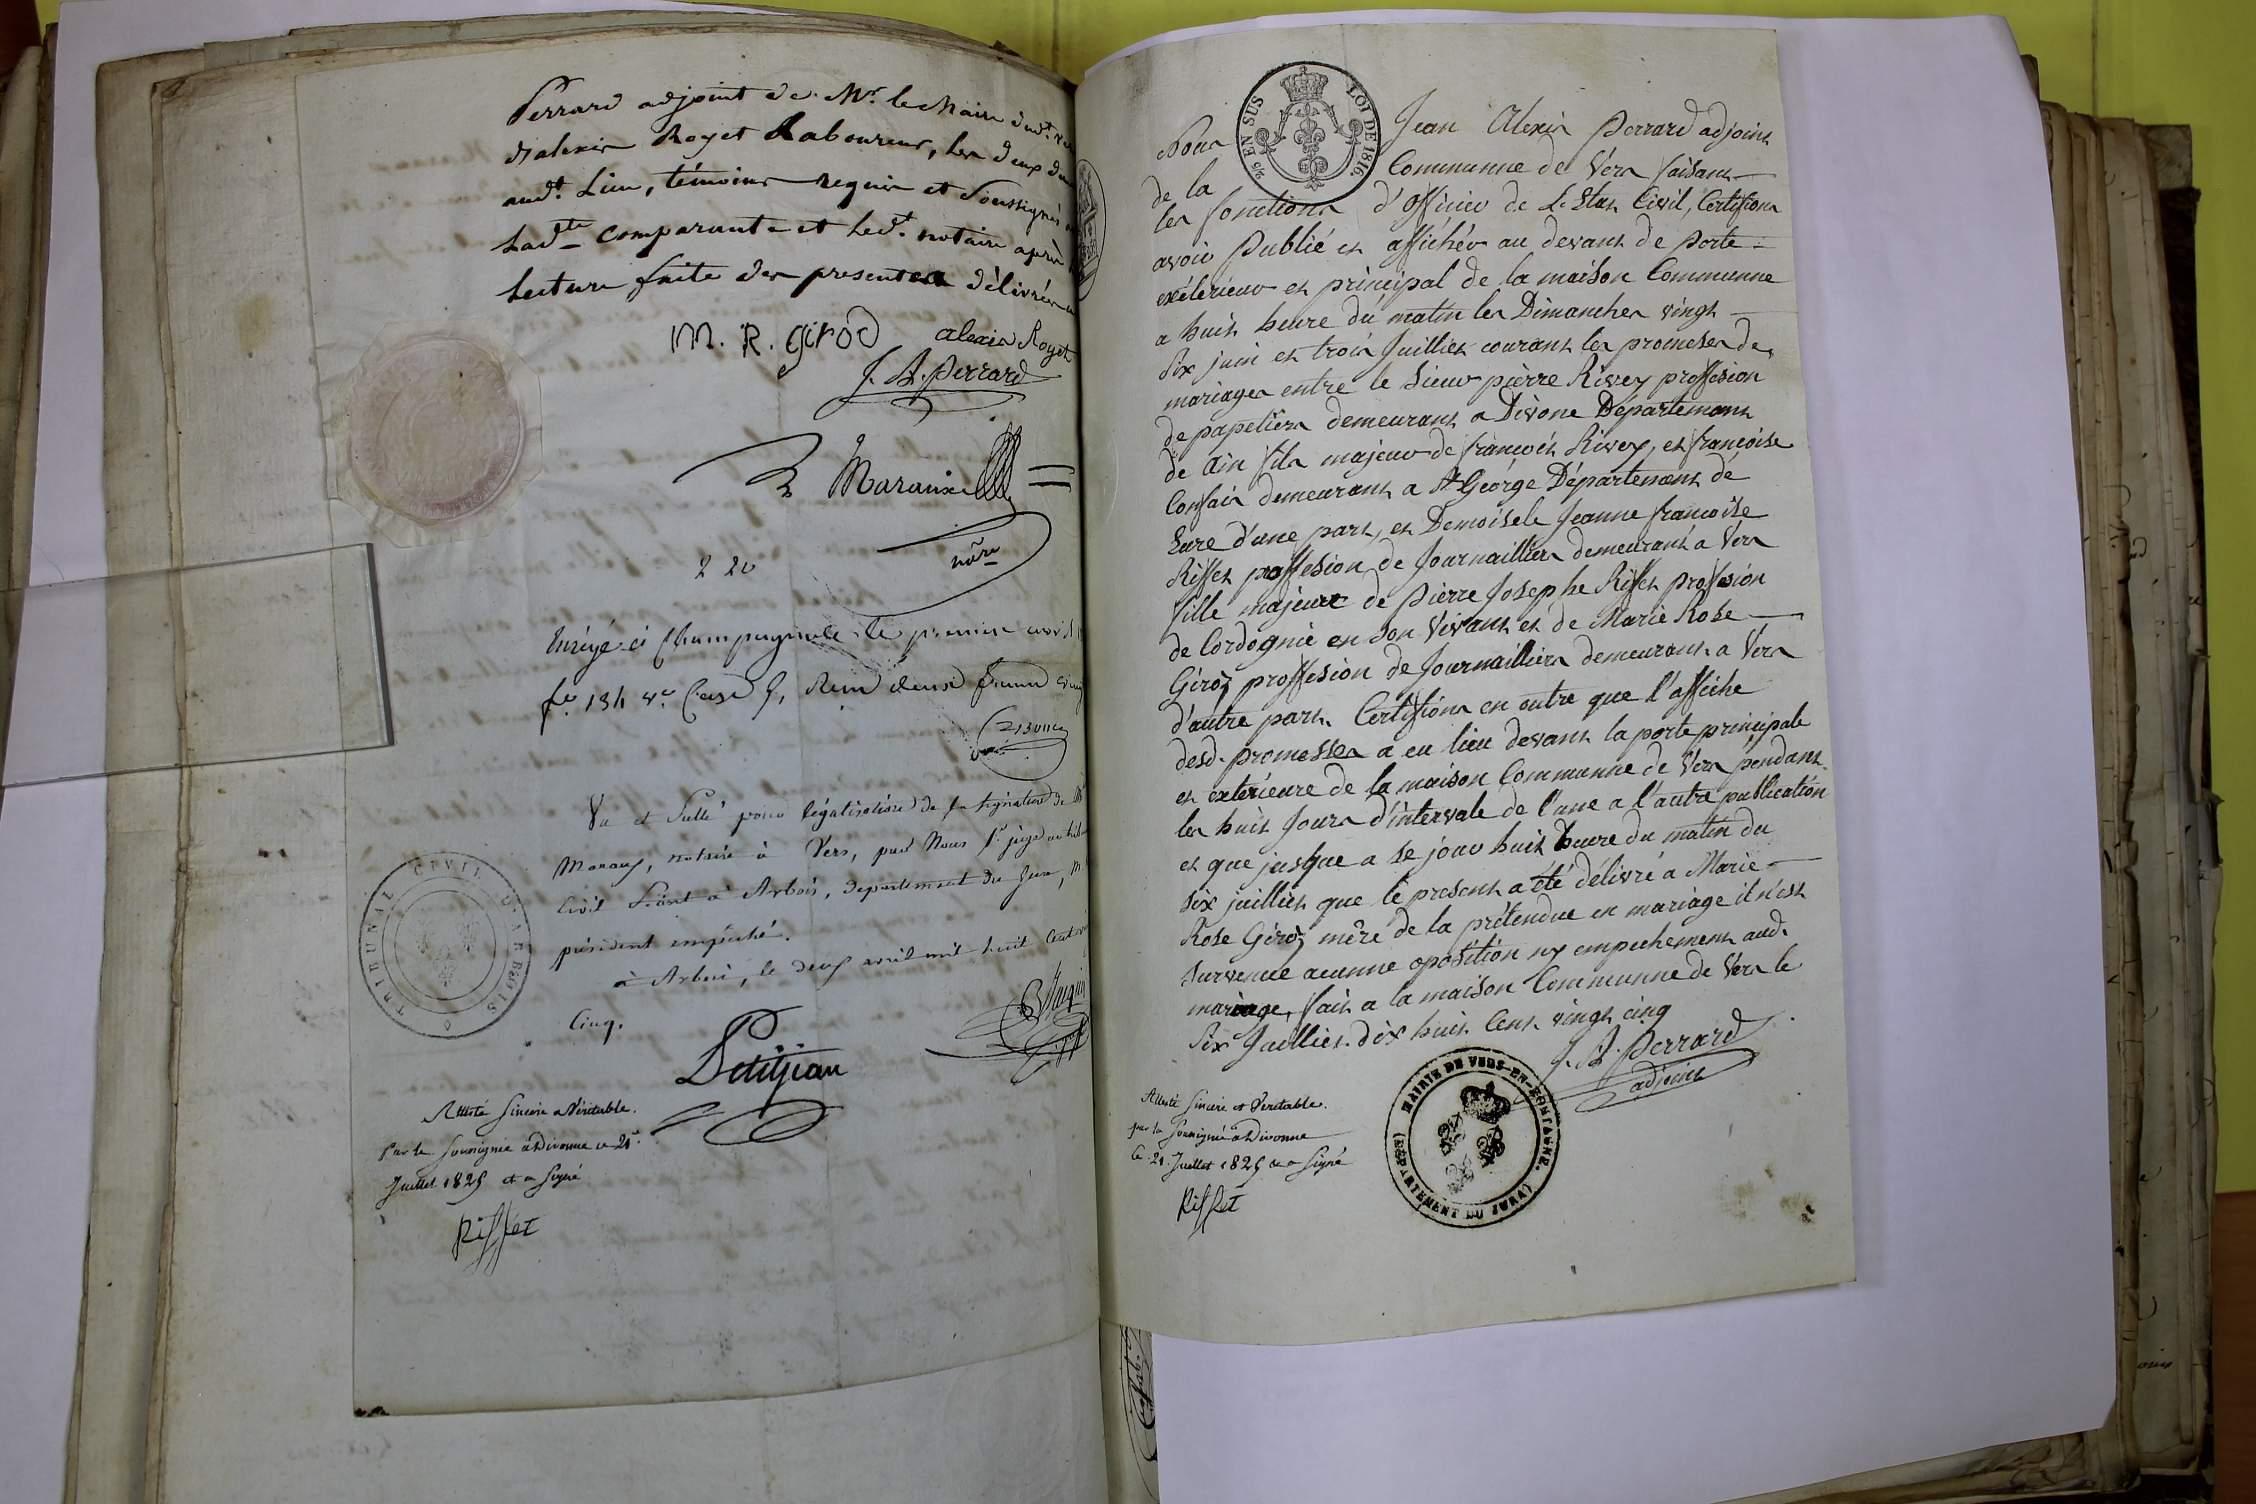 Perrard adjoint de Mr. le Maire dudt.
d'alexis Royet Laboureur, les deux
audt. Lieu, témoins requis et Soussignés
Ladte comparante et Ledt. notaire après
Lecture faite des presentes délivrées
M. R. girod alexis Royet
J. A. Perrard
Maraux
nore
2 20
Enrégé à Champagnole le premier avril
fo. 134 vo. Case 5, Reçu deux francs vingt
Vu et Scellé pour légalisation de la signature de Mr
Maraux, notaire à Vers, par Nous 1er. juge au tribl
Civil Séant à Arbois, département du Jura, Mr
président empêché.
à Arbois, le deux avril mil huit Cent
Cinq.
Petitjean
TRIBUNAL CIVIL D'ARBOIS
Attesté Sincere a Véritable.
Par le Soussignée a Divonne ce 21e.
Juillet 1825 et a Signé
Riffet
5/10 EN SUS LOI DE 1816.
Nous Jean Alexis Perrard adjoint
de la Communne de Vers faisant
les fonctions d'officier de L'Etat Civil, Certifions
avoir Publié et affichér au devant de Porte
exéterieur et principal de la maison Communne
a huit heure du matin les Dimanches vingt
Six juin et trois Juilliet courant les promeses de
mariages entre le Sieur pièrre Rivey proffesion
de papetiers demeurant a Divone Départemant
de Ain fils majeur de francois Rivey, et francoise
Confais demeurant a St Géorge Département de
Eure d'une part, et Demoisele Jeanne francoise
Riffet proffesion de Journailliers demeurant a Vers
fille majeure de Pierre Josephe Riffet Proffesión
de Cordognié en Son Vivant et de Marie Rose
Giroz proffesion de Journailliers demeurant a Vers
d'autre part. Certifions en outre que l'affiche
desd. promesses a eu lieu devant la porte principale
et extérieure de la maison Communne de Vers pendant
les huit Jours d'intervale de l'une a l'autre publication
et que jusque a se jour huit heure du matin du
Six juilliet que le present a été délivré a Marie
Rose Giroz mère de la prétendue en mariage il n'est
Survenue aucunne oposition ny empechement aud.
mariage, fait a la maison Communne de Vers le
Six Juilliet dix huit Cent vingt cinq
J. A. Perrard
adjoint
MAIRIE DE VERS-EN-MONTAGNE. (DÉPARTEMENT DU JURA)
Attesté Sincere et Veritable.
par la Soussignée a Divonne
Ce 21 Juillet 1825 et a Signé
Riffet